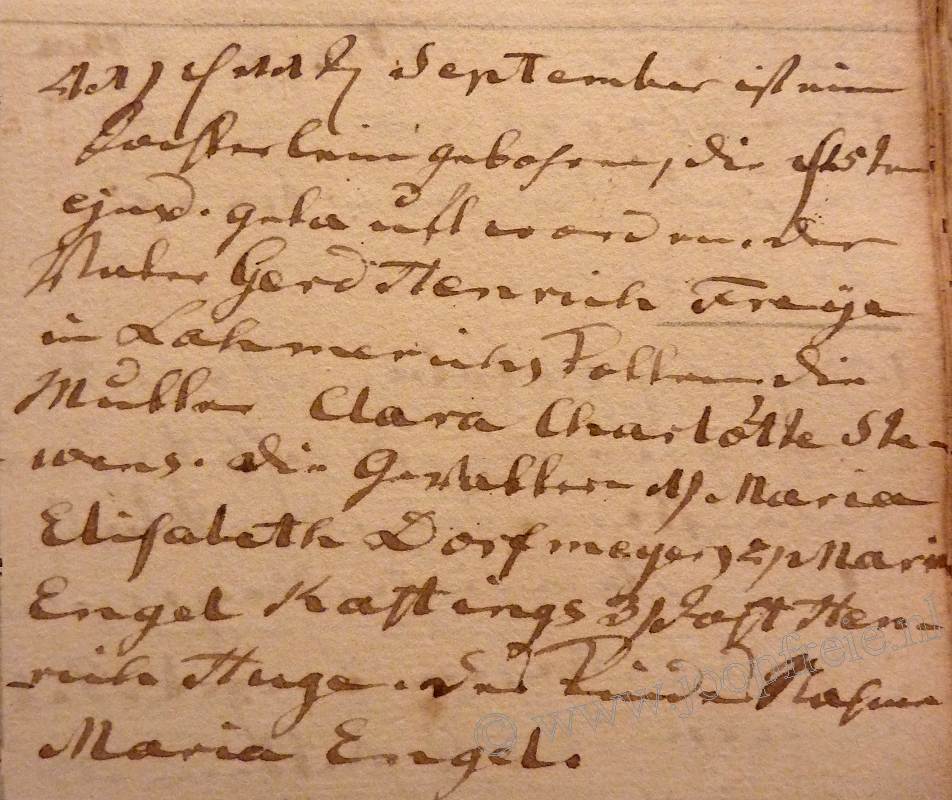 September ist ein
Töchterlein gebohren, die
ejusd. getauft worden. der
Vater Gerd Henrich Freÿe
in Lahmerichs Kotten. die
Mutter Clara Charlotte Ste-
wens. die Gevattern 1) Maria
Elisabeth Dorfmeyers 2) Maria
Engel Kastings 3) Jost Hen-
rich Huge. des Kindes Nahme
Maria Engel.
© www.joopfreie.nl